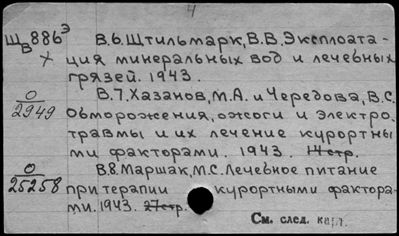 4
Щв886э В.6. Штильмарк, В.В. Эксплоата-
х ция минеральных вод и лечебных
грязей. 1943.
О В.7. Хазанов, М.А. и Чередова, В.С.
2949 Обморожения, ожоги и электро.
травмы и их лечение курортны
ми факторами. 1943. 14стр.
О В.8. Маршак, М.С. Лечебное питание
25258 при терапии курортными фактора-
ми. 1943. 27стр.
См. след. карт.